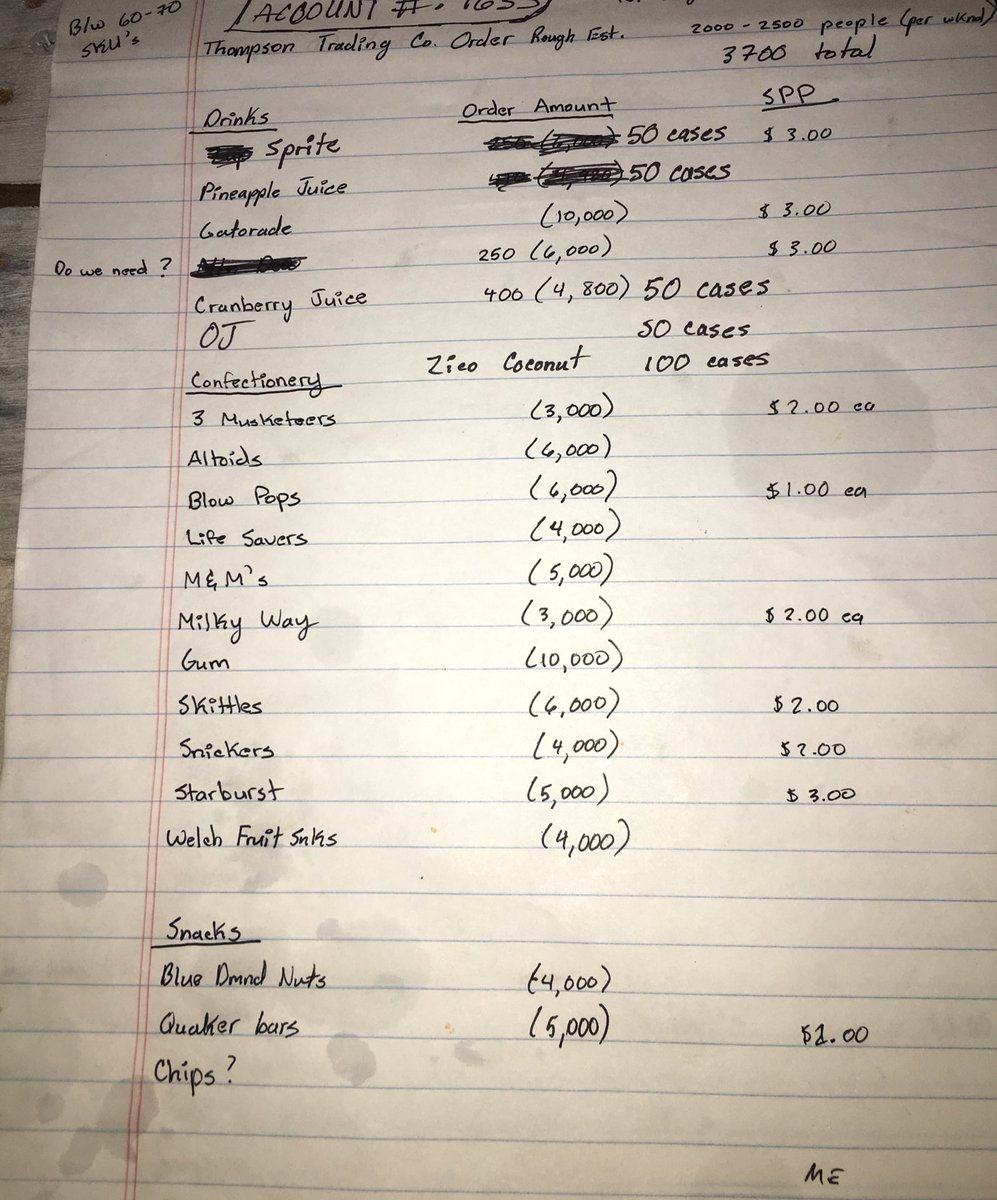 B/w 60-70
SKU's
ACCOUNT #. 1633
Thompson Trading Co. Order Rough Est.
2000 - 2500 people (per wknd)
3700 total
Drinks Order Amount SPP
Sprite 50 cases $ 3.00
Pineapple Juice 50 cases
Gatorade (10,000) $ 3.00
Do we need ? 250 (6,000) $ 3.00
Cranberry Juice 400 (4,800) 50 cases
OJ 50 cases
Confectionery Zico Coconut 100 cases
3 Musketeers (3,000) $ 2.00 ea
Altoids (6,000)
Blow Pops (6,000) $1.00 ea
Life Savers (4,000)
M&M's (5,000)
Milky Way (3,000) $ 2.00 ea
Gum (10,000)
Skittles (6,000) $ 2.00
Snickers (4,000) $ 2.00
Starburst (5,000) $ 3.00
Welch Fruit Snks (4,000)
Snacks
Blue Dmnd Nuts (4,000)
Quaker bars (5,000) $1.00
Chips?
ME